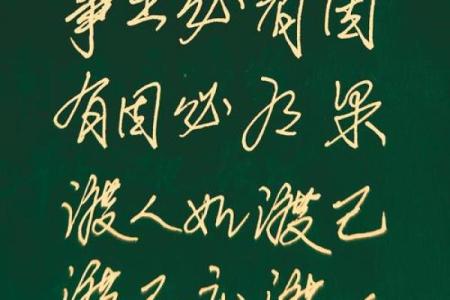 事出必有因
有因必有果
渡人如渡己
渡己亦渡